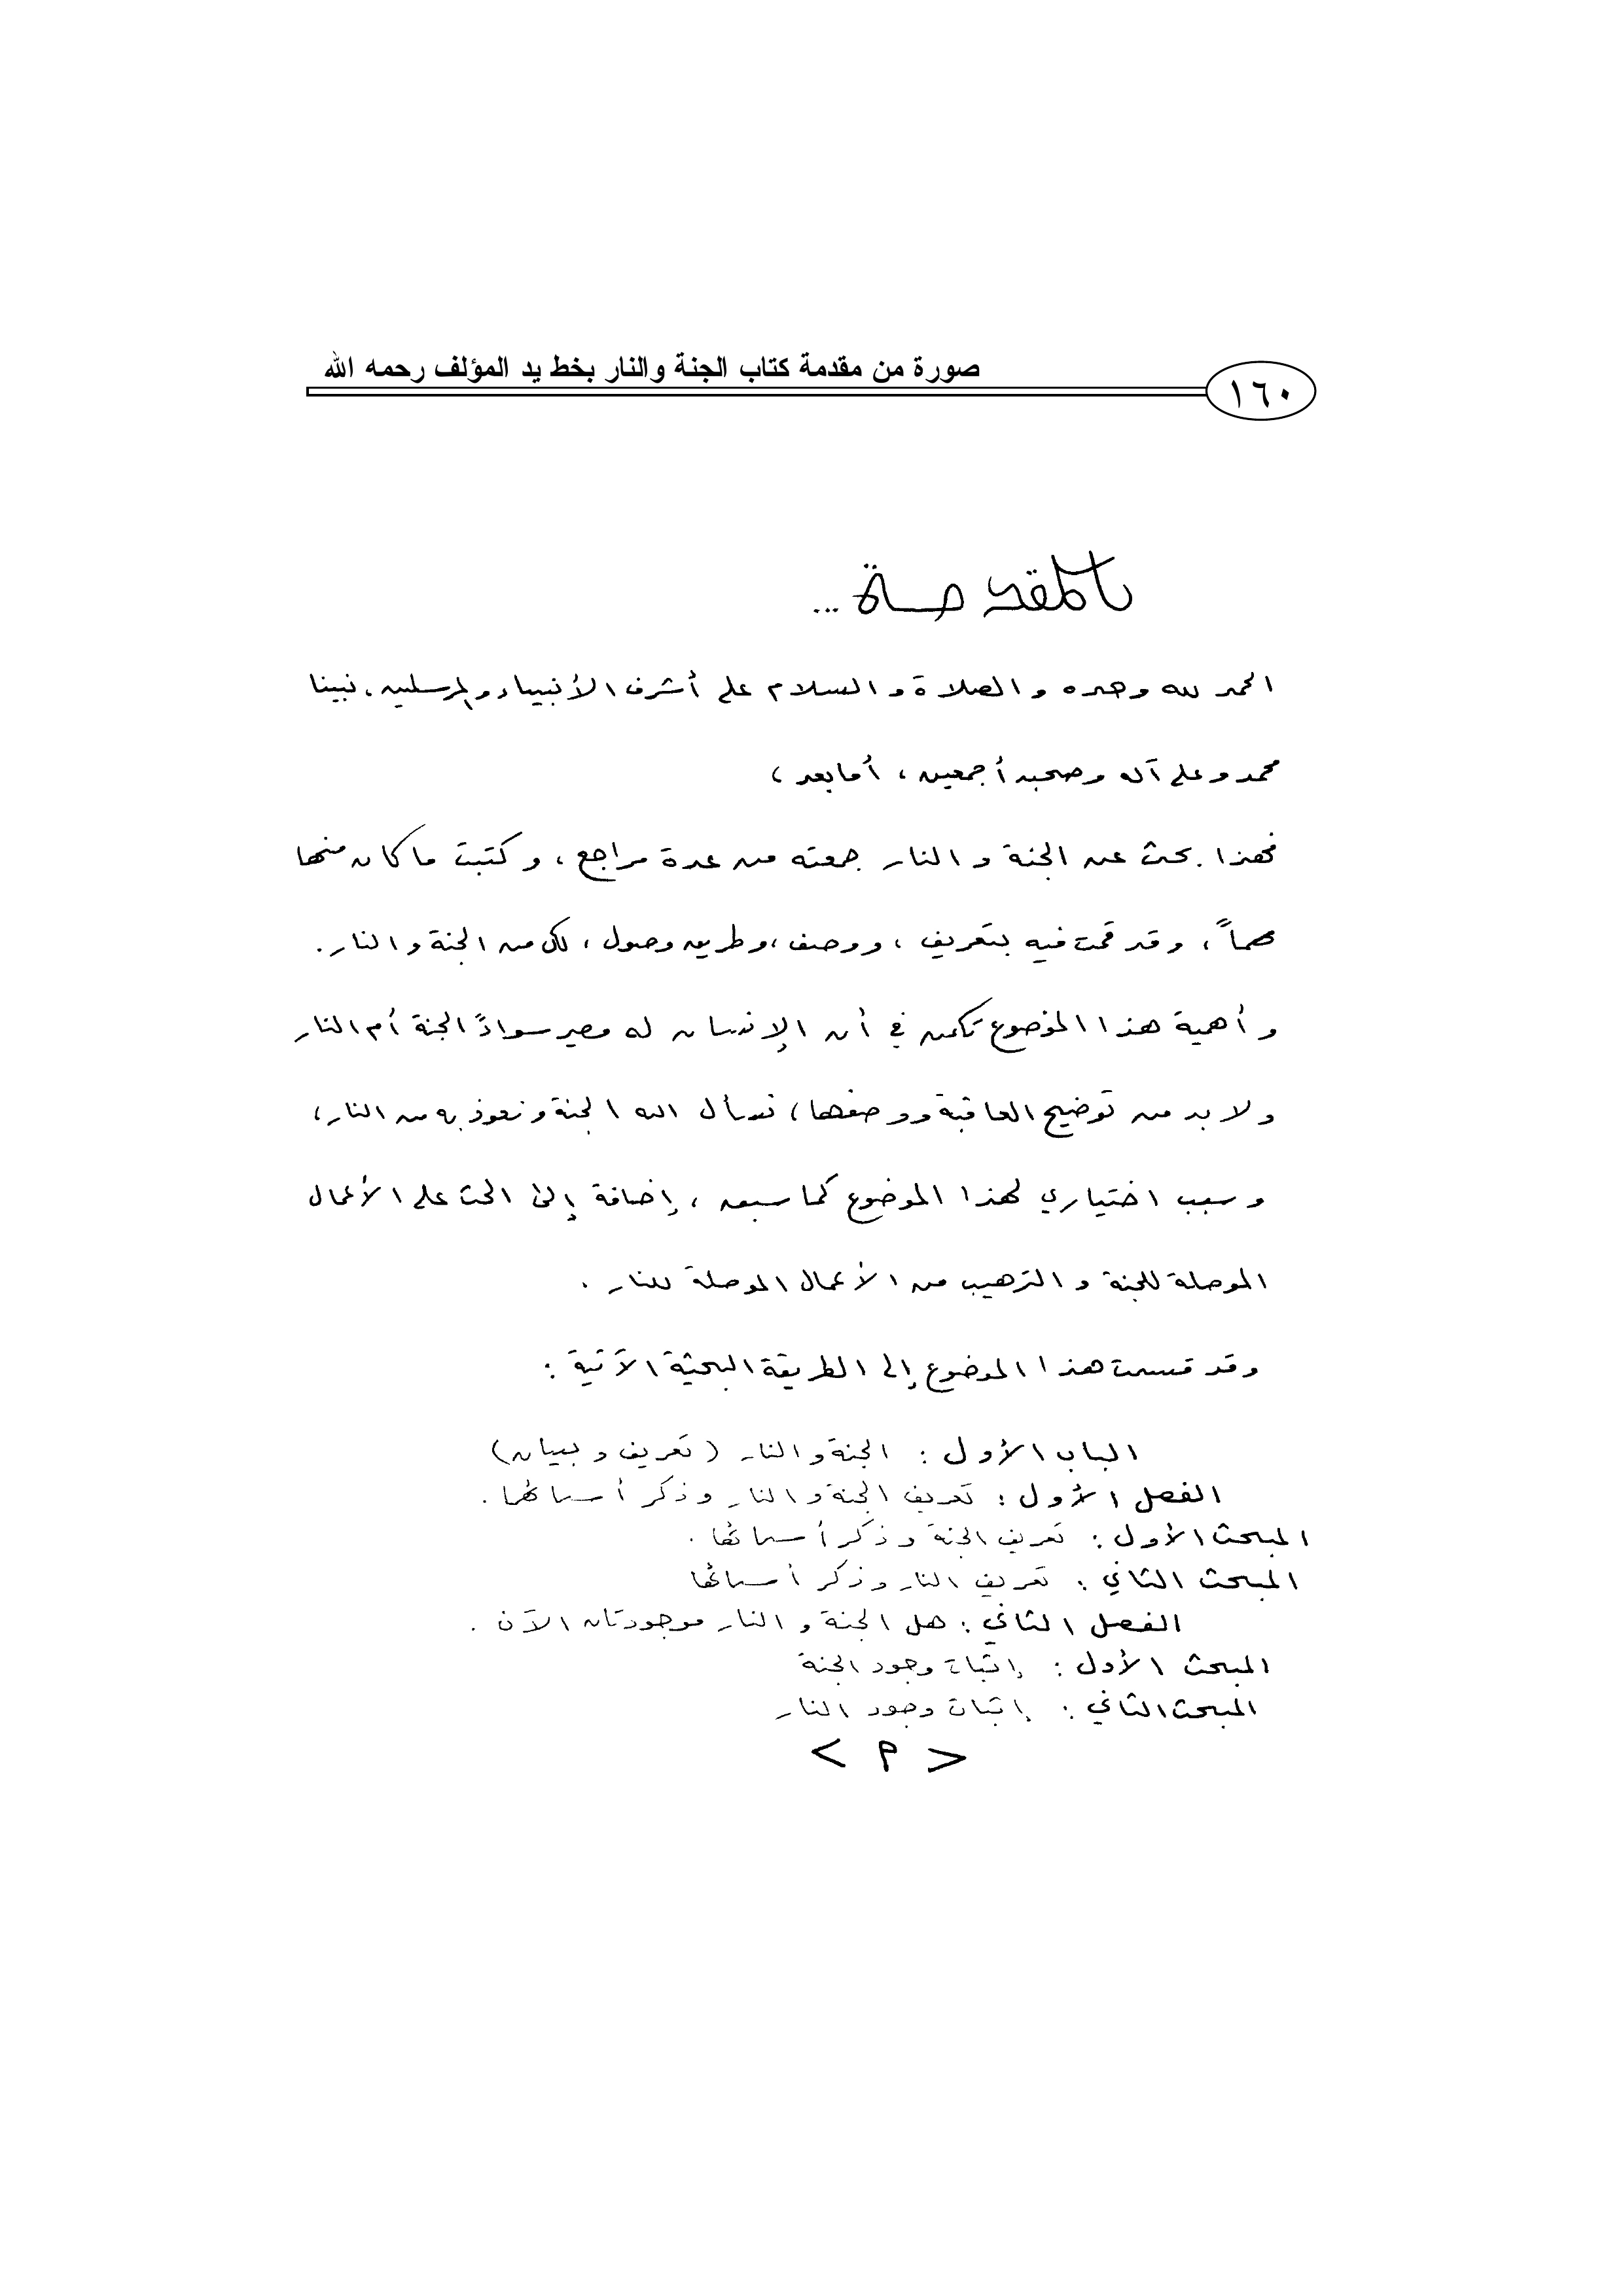 صورة من مقدمة كتاب الجنة والنار بخط يد المؤلف رحمه الله
١٦٠
المقدمـة ...
الحمد لله وحده والصلاة والسلام على أشرف الأنبياء والمرسلين، نبينا
محمد وعلى آله وصحبه أجمعين، أما بعد،
فهذا بحث عن الجنة والنار جمعته من عدة مراجع، وكتبت ما كان منها
مهماً، وقد قمت فيه بتعريف، ووصف، وطريق وصول، لكل من الجنة والنار.
وأهمية هذا الموضوع تكمن في أن الإنسان له مصير سواءً الجنة أم النار
ولا بد من توضيح العاقبة ووصفها، نسأل الله الجنة ونعوذ به من النار،
وسبب اختياري لهذا الموضوع كما سبق، إضافة إلى الحث على الأعمال
الموصلة للجنة والترهيب من الأعمال الموصلة للنار.
وقد قسمت هذا الموضوع إلى الطريقة البحثية الآتية:
الباب الأول: الجنة والنار (تعريف وبيان)
الفصل الأول: تعريف الجنة والنار وذكر أسمائهما.
المبحث الأول: تعريف الجنة وذكر أسمائها.
المبحث الثاني: تعريف النار وذكر أسمائها
الفصل الثاني: هل الجنة والنار موجودتان الآن.
المبحث الأول: إثبات وجود الجنة
المبحث الثاني: إثبات وجود النار
< م >